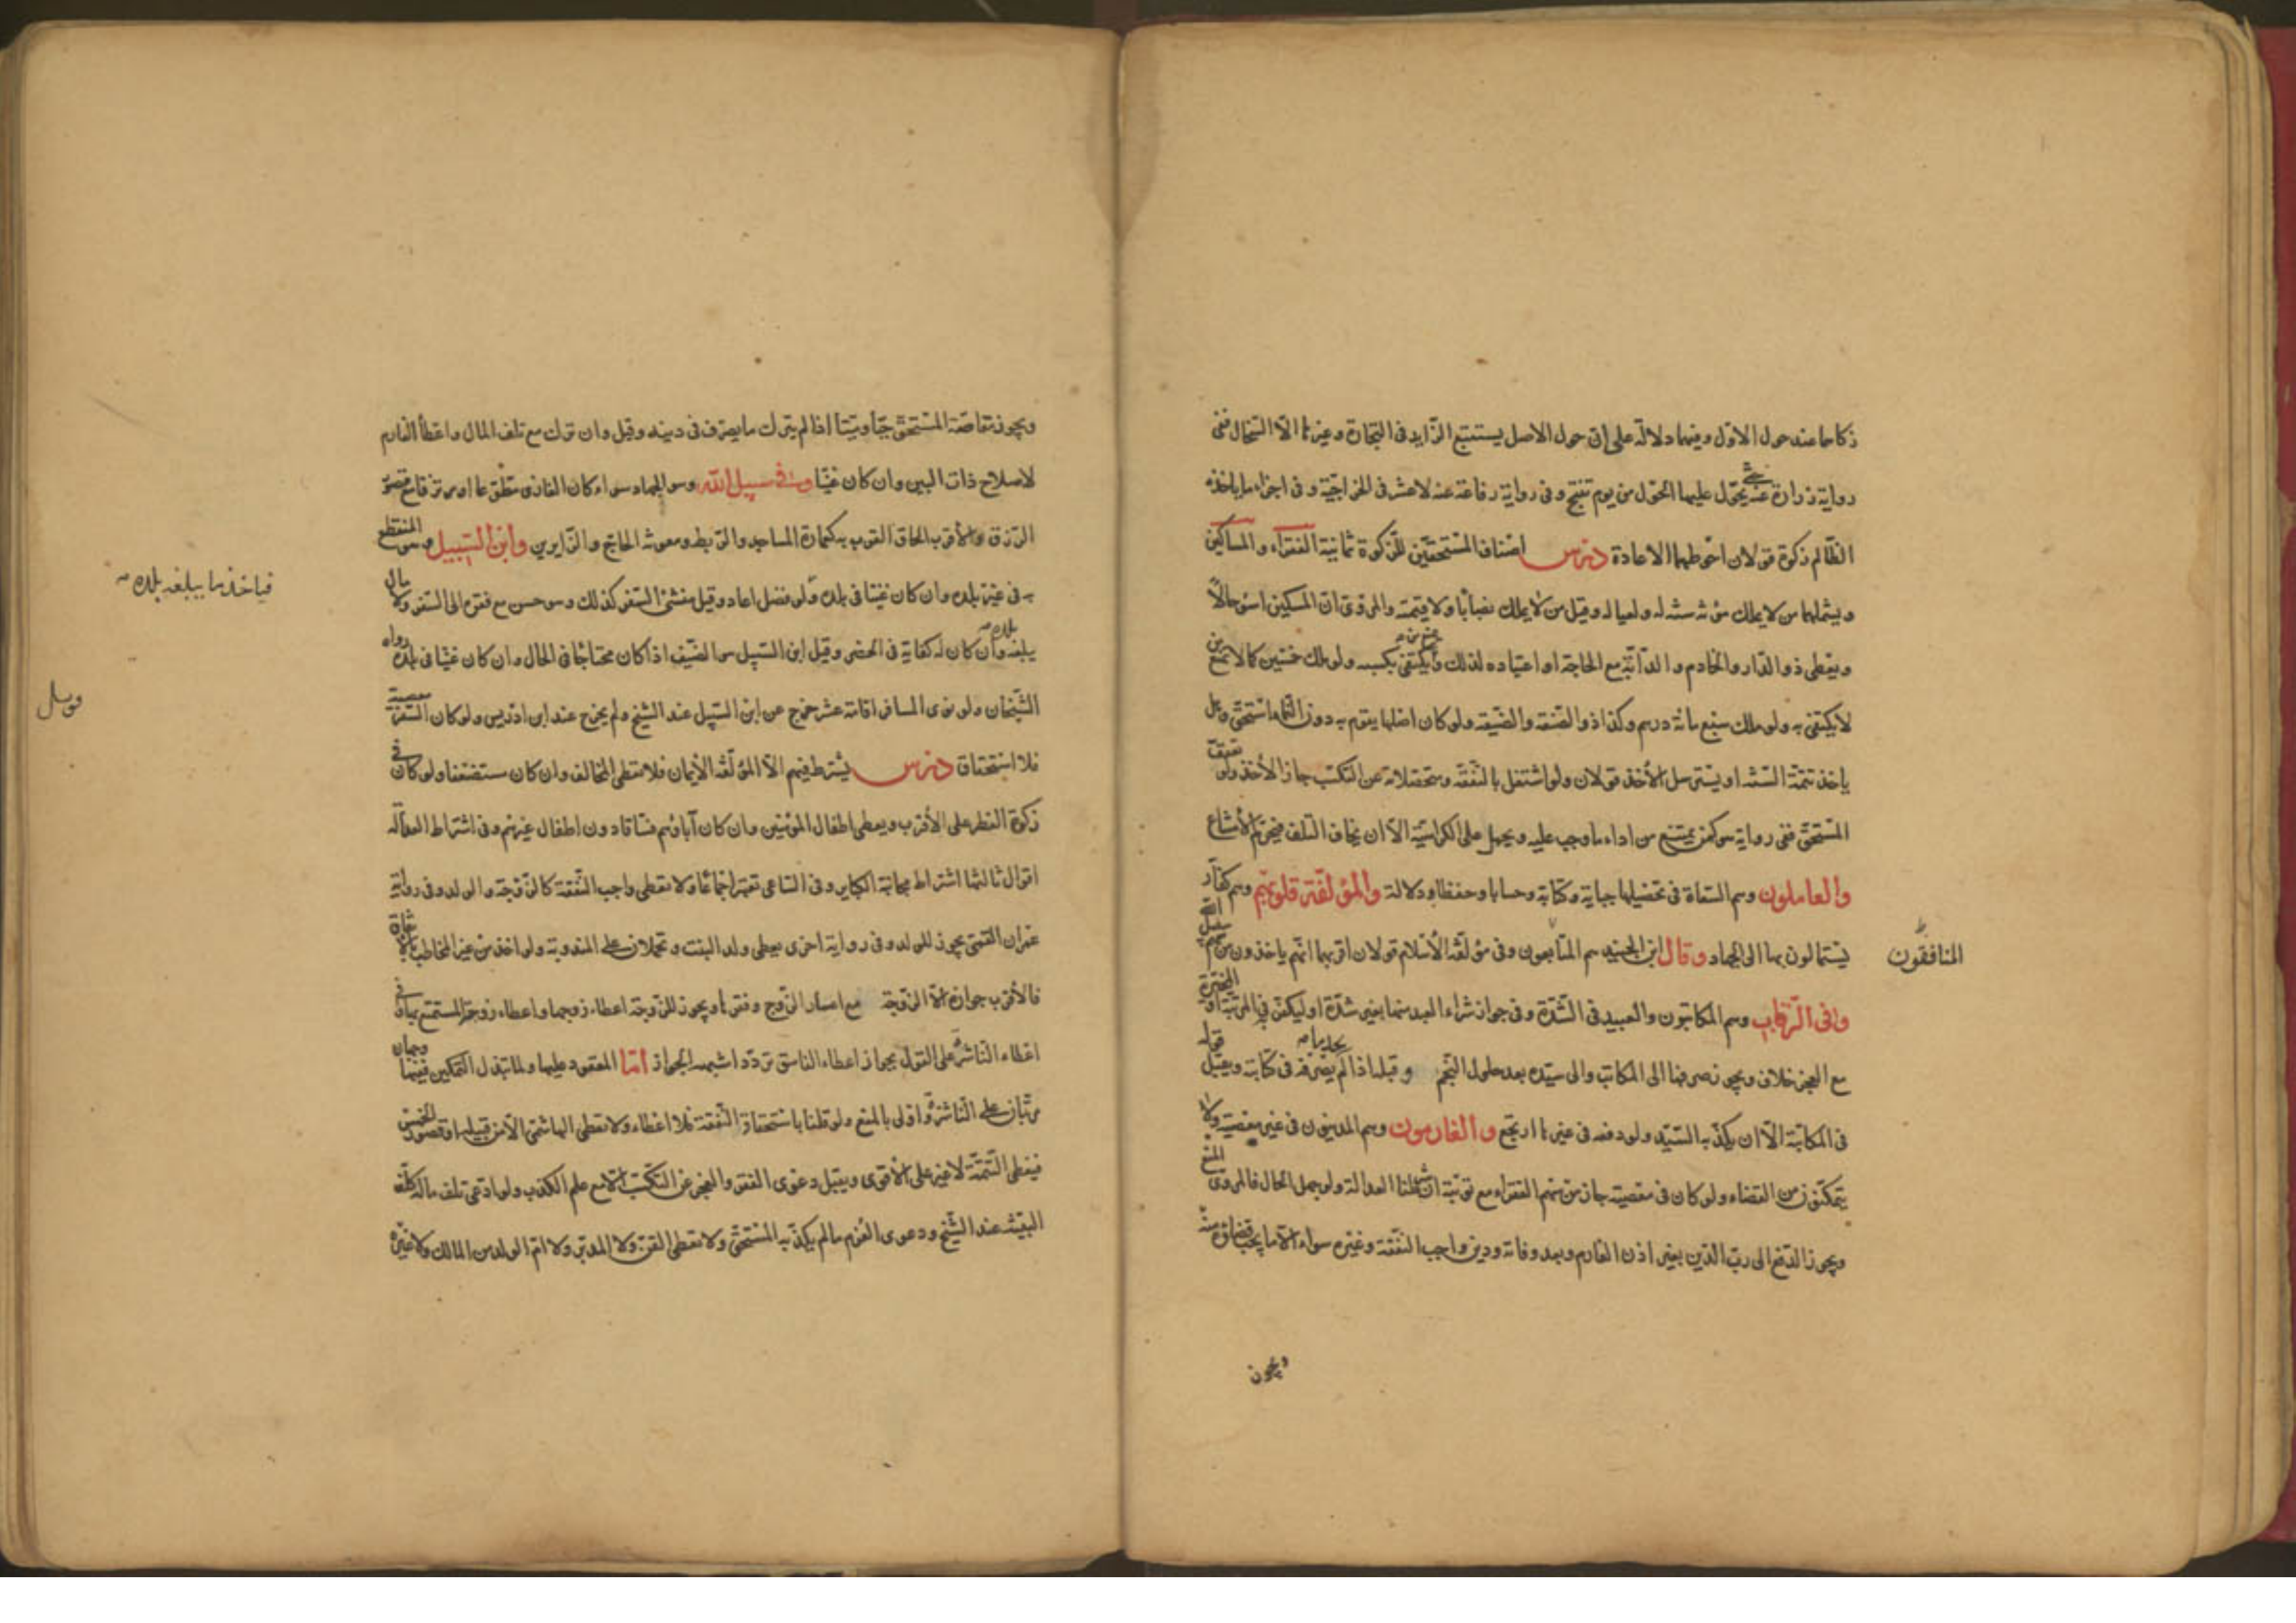 زكاها عند حول الاول وفيها دلالة على ان حول الاصل يستتبع الزايد في التجارة وغيرها الا السخال ففي
رواية زرارة عنه يحول عليها الحول من يوم تنتج وفي رواية رفاعة عنه لا عشر في الخراجية وفي اجزاء ما ياخذه
الظالم زكوة قولان احوطهما الاعادة درس اصناف المستحقين للزكوة ثمانية الفقراء والمساكين
ويشملهما من لا يملك مؤنة سنة له ولعياله وقيل من لا يملك نصابا ولا قيمته والمروي ان المسكين اسوء حالا
ويعطى ذو الدار والخادم والدابة مع الحاجة او اعتياده لذلك ولو ملك خمسين كالامنع من
لا يكتفي به ولو ملك سبع مائة درهم وكذا ذو الصنعة والضيعة ولو كان اصلها يقوم به دون النماء استحق وهل
ياخذ تتمة السنة او يسترسل الاخذ قولان ولو اشتغل بالتفقه ومحصلاته عن التكسب جاز الاخذ ولو تعفف
المستحق ففي رواية هو كمن يمتنع من اداء ما وجب عليه ويحمل على الكراهية الا ان يخاف التلف فيحرم الامتناع
والعاملون وهم السعاة في تحصيلها جباية وكتابة وحسابا وحفظا ودلالة والمؤلفة قلوبهم وهم كفار
يستمالون بها الى الجهاد وقال ابن الجنيد هم المنافقون وفي مؤلفة الاسلام قولان اقربهما انهم ياخذون من سهم سبيل الله
وفي الرقاب وهم المكاتبون والعبيد في الشدة وفي جواز شراء العبد منها بغير شدة او ليكفر في المرتبة او المخيرة
مع العجز خلاف ويجوز صرفها الى المكاتب والى سيده بعد حلول النجم وقبله اذا لم يصرفه في كتابته ويقبل قوله
في المكاتبة الا ان يكذبه السيد ولو دفعه في غيرها ارتجع والغارمون وهم المدينون في غير معصية ولا
يتمكنون من القضاء ولو كان في معصية جاز من سهم الفقراء مع توبته ان شرطنا العدالة ولو جهل الحال فالمروي المنع
ويجوز الدفع الى رب الدين بغير اذن الغارم وبعد وفاته ودين واجب النفقة وغيره سواء الا ما يجب قضاؤه منه
المنافقون
ويجوز
ويجوز مقاصة المستحق حيا وميتا اذا لم يترك ما يصرف في دينه وقيل وان ترك مع تلف المال واعطاء الغارم
لاصلاح ذات البين وان كان غنيا وفي سبيل الله وهو الجهاد سواء كان الغازي متطوعا او مرتزقا مع قصور
الرزق والاقرب الحاق القرب به كعمارة المساجد والربط ومعونة الحاج والزايرين وابن السبيل وهو المنقطع
به في غير بلده وان كان غنيا في بلده ولو فضل اعاد وقيل منشئ السفر كذلك وهو حسن مع فقره الى السفر ولا مال
يبلغه وان كان له كفاية في الحضر وقيل ابن السبيل هو الضيف اذا كان محتاجا في الحال وان كان غنيا في بلده رواه
الشيخان ولو نوى المسافر اقامة عشر خرج عن ابن السبيل عند الشيخ ولم يخرج عند ابن ادريس ولو كان السفر معصية
فلا استحقاق درس يشترط فيهم الا المؤلفة الايمان فلا يعطى المخالف وان كان مستضعفا ولو كان في
زكوة الفطر على الاقرب ويعطى اطفال المؤمنين وان كان آباؤهم فساقا دون اطفال غيرهم وفي اشتراط العدالة
اقوال ثالثها اشتراط مجانبة الكباير وفي الساعي تعتبر اجماعا ولا يعطى واجب النفقة كالزوجة والولد وفي رواية
عمران القمي يجوز للولد وفي رواية اخرى يعطى ولد البنت وتحملان على المندوبة ولو اخذ من غير المخاطب
فالاقرب جوازه الا الزوجة مع اعسار الزوج وفقرها ويجوز للزوجة اعطاء زوجها واعطاء زوجة المستمتع بها وفي
اعطاء الناشز على القول بجواز اعطاء الفاسق تردد اشبهه الجواز اما المعقود عليها ولما تبذل التمكين ففيها وجهان
مرتبان على الناشزة واولى بالمنع ولو قلنا باستحقاق النفقة فلا اعطاء ولا يعطى الهاشمي الا من قبيله او قصور الخمس
فيعطى التتمة لا غير على الاقوى ويقبل دعوى الفقر والعجز عن التكسب الا مع علم الكذب ولو ادعى تلف ماله كلف
البينة عند الشيخ ودعوى الغرم ما لم يكذبه المستحق ولا يعطى القن ولا المدبر ولا ام الولد من المالك ولا غيره
فياخذ ما يبلغه بلده